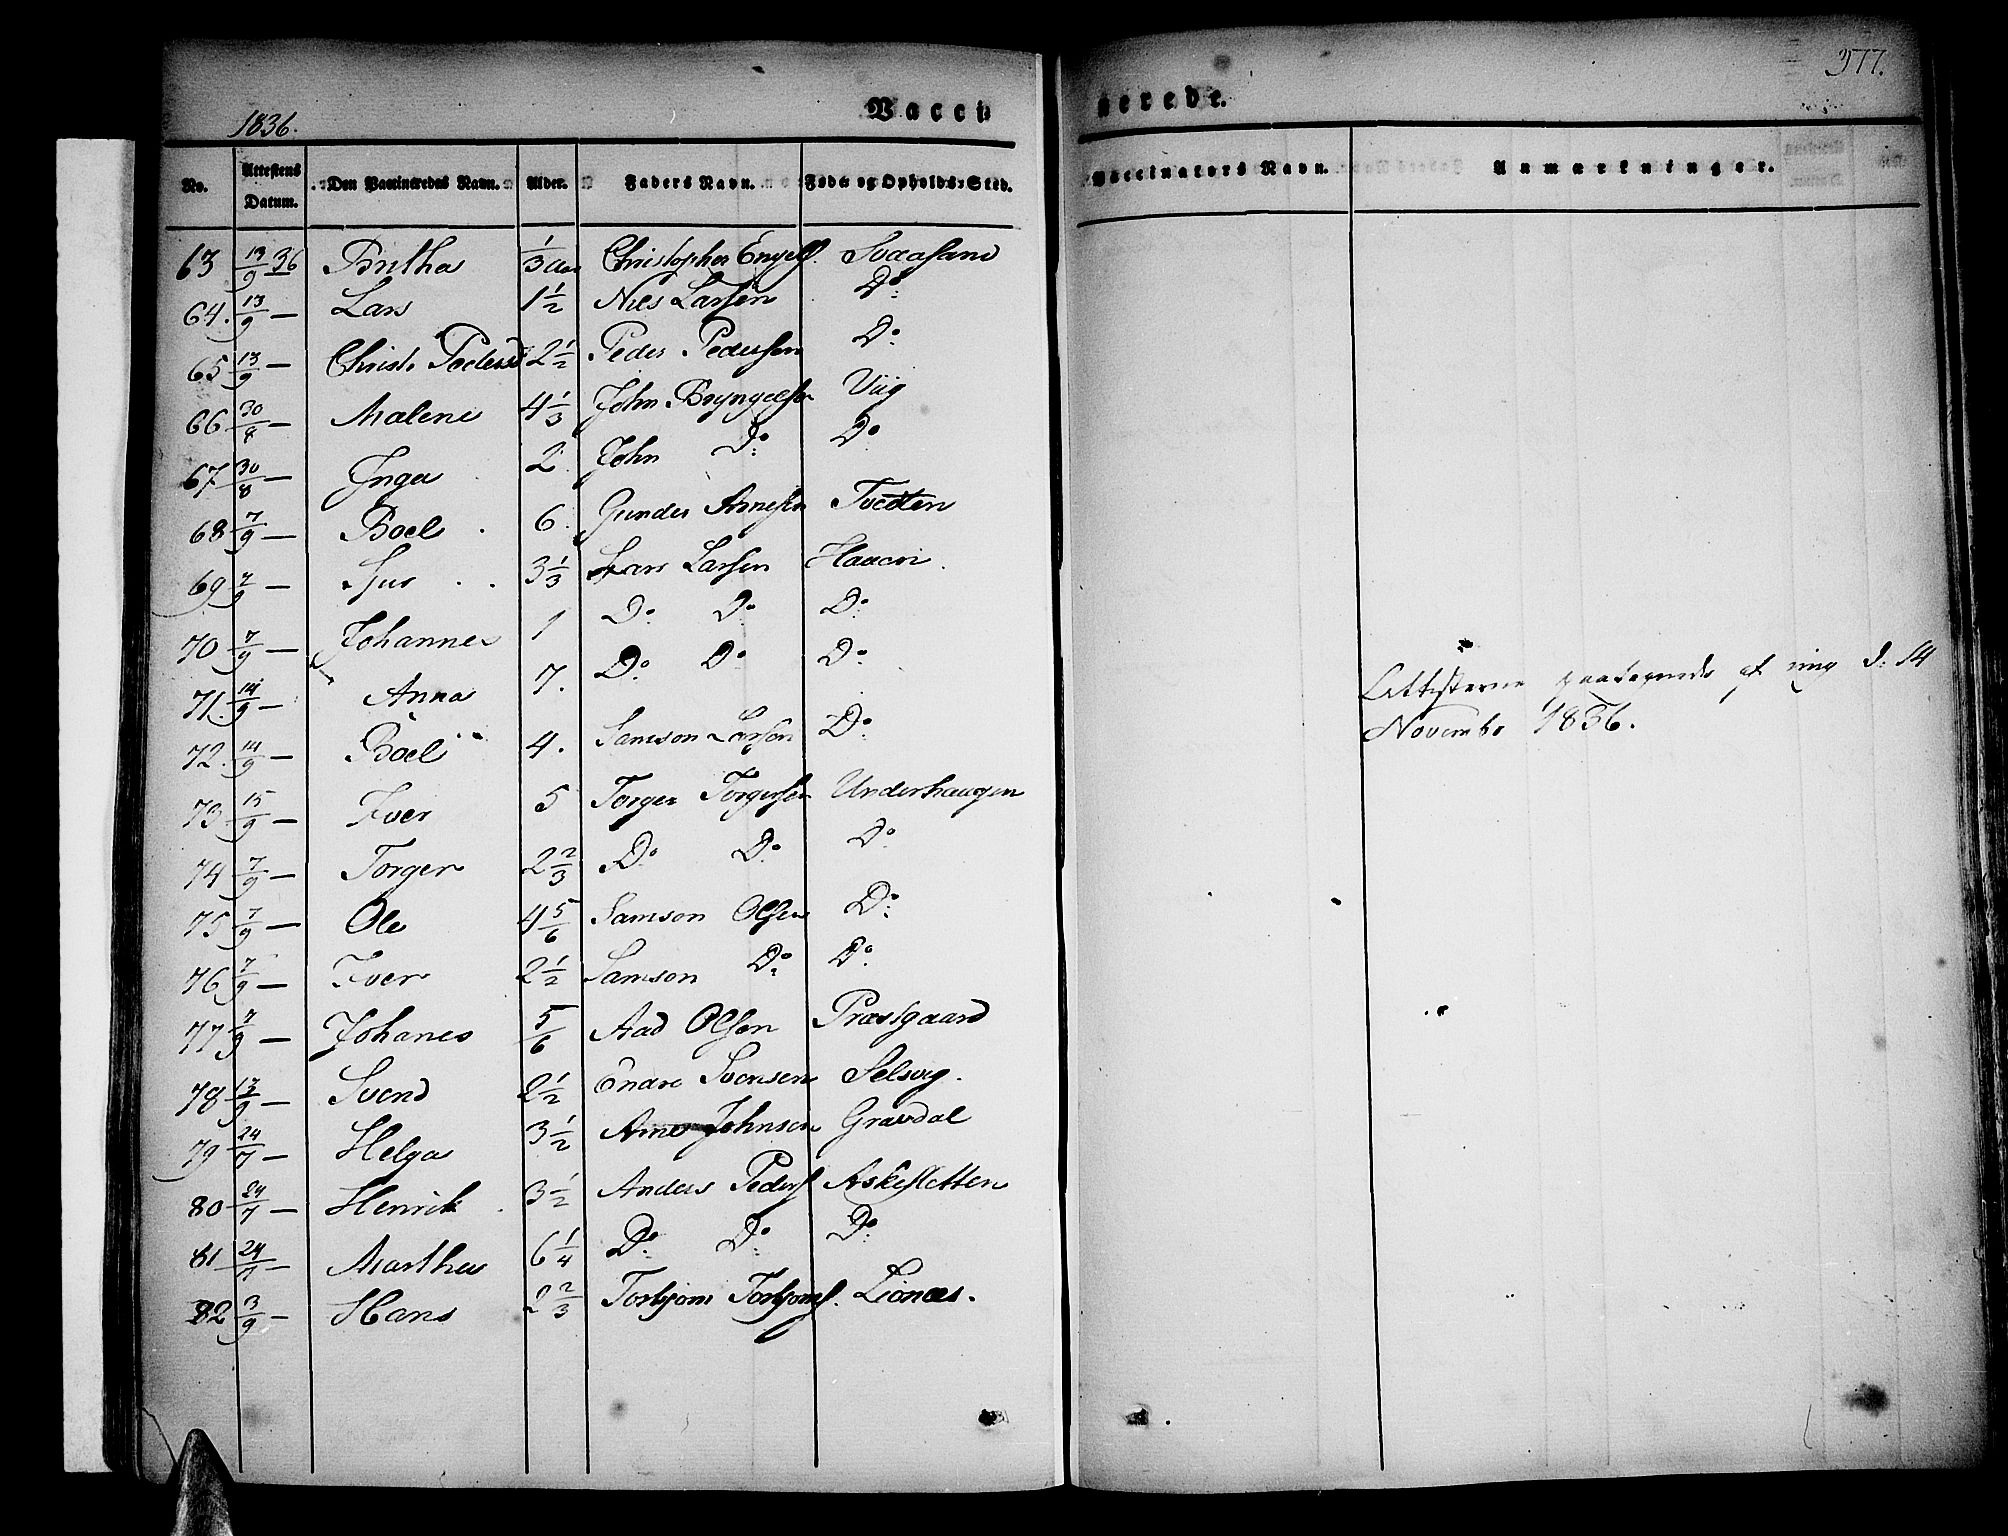 1836.
Vacci
nerede.
377.
No. Attestens Datum. Den Vaccineredes Navn. Alder. Faders Navn. Føde og Opholds-Sted.
Vaccinateurs Navn. Anmærkninger.
63 13/9 36 Britha 1/3 Aar Christopher Engels. Svaasand
64. 13/9 — Lars 1 1/2 Niels Larsen Do
65 13/9 — Christi Peders 2 1/2 Peder Pedersen Do
66 30/8 — Malene 4 1/3 John Bryngelsen Viig
67 30/8 — Inga 2 John Do Do
68 7/9 — Boel 6. Gunder Arnesen Tvedten
69 7/9 — Siur 3 1/3 Lars Larsen Haaevi
70 7/9 — Johannes 1 Do Do Do
71. 14/9 — Anna 7. Do Do Do
72. 14/9 — Boel 4. Samson Larsen Do
73 15/9 — Iver 5 Torger Torgersen Underhaugen
74 7/9 — Torger 2 2/3 Do Do Do
75 7/9 — Ole 4 5/6 Samson Olsen Do
76 7/9 — Iver 2 1/2 Samson Do Do
77 7/9 — Johanes 5/6 Aad Olsen Præstgaard
78 13/9 — Svend 2 1/2 Endre Svensen Selsvig.
79 24/7 — Helga 3 1/2 Arne Johnsen Gravdal
80 24/7 — Henrik 3 1/2 Anders Peders Askesletten
81 24/7 — Marthe 6 1/4 Do Do Do
82 3/9 — Hans 2 2/3 Torbjørn Torbjørns. Lionæs.
Attesterne paategnede af mig d: 14
Novembr 1836.